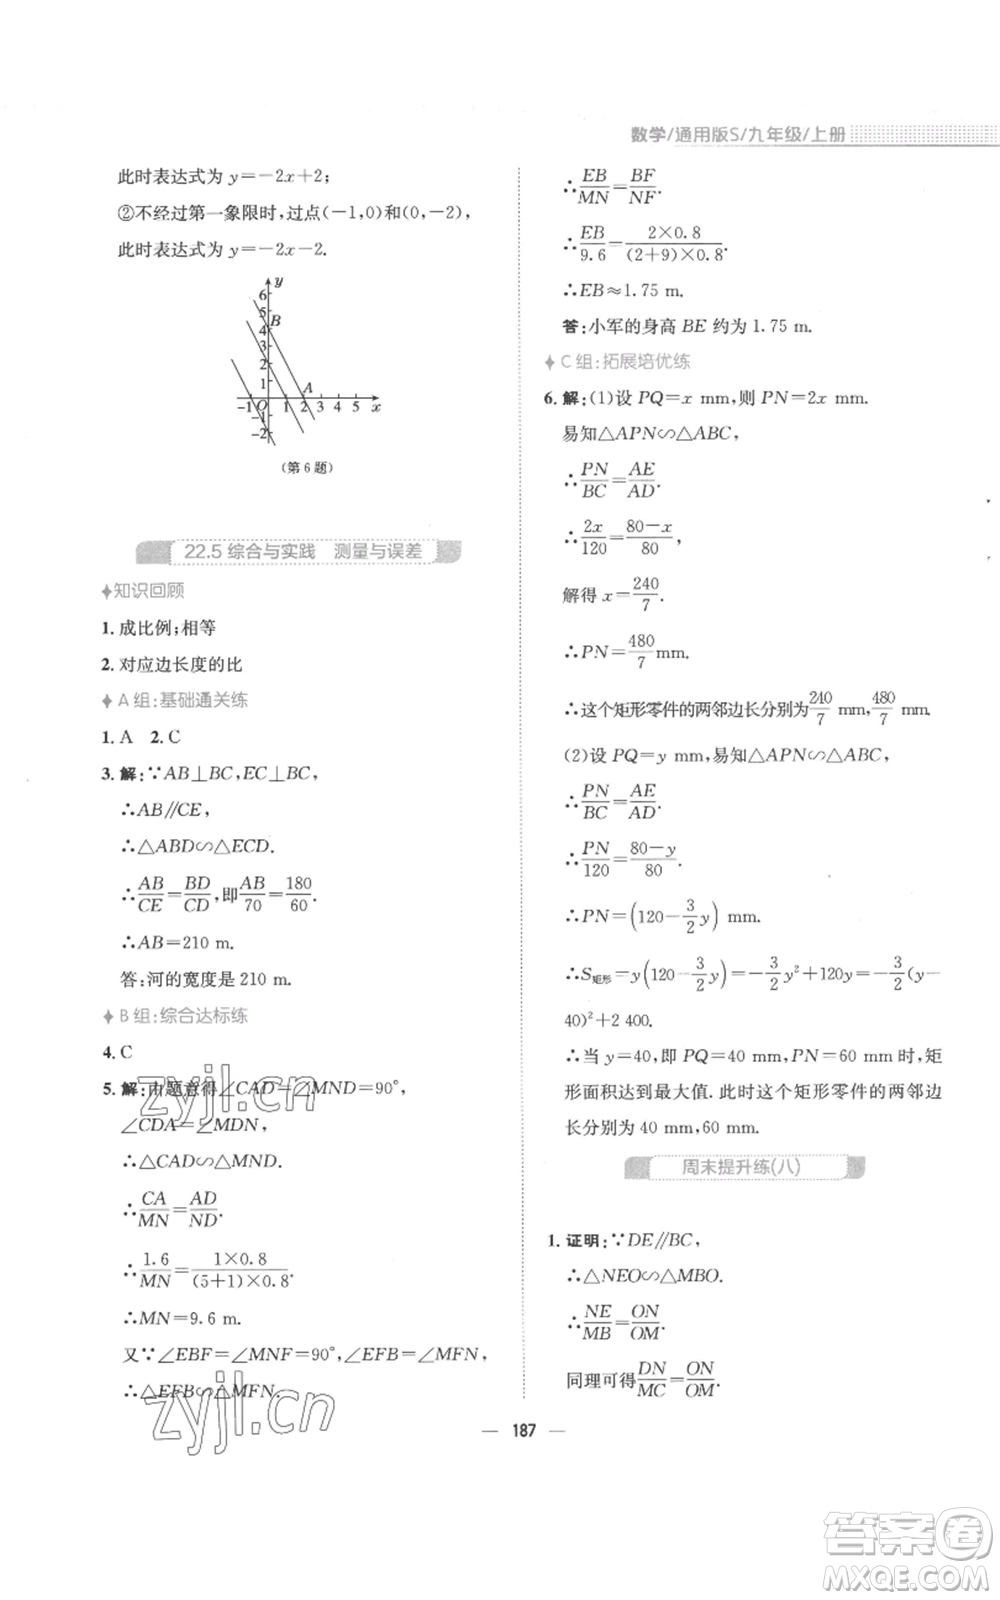 数学/通用版S/九年级/上册
此时表达式为 y=-2x+2;
②不经过第一象限时,过点(-1,0)和(0,-2),
此时表达式为 y=-2x-2.
y
6
5
4
3
2
1
B
A
-1 O 1 2 3 4 5 x
-1
-2
(第 6 题)
22.5 综合与实践 测量与误差
知识回顾
1. 成比例;相等
2. 对应边长度的比
A 组:基础通关练
1. A 2. C
3. 解:∵AB⊥BC,EC⊥BC,
∴AB∥CE,
∴△ABD∽△ECD.
∴AB/CE=BD/CD,即AB/70=180/60.
∴AB=210 m.
答:河的宽度是 210 m.
B 组:综合达标练
4. C
5. 解:由题意得∠CAD=∠MND=90°,
∠CDA=∠MDN,
∴△CAD∽△MND.
∴CA/MN=AD/ND.
∴1.6/MN=1×0.8/(5+1)×0.8.
∴MN=9.6 m.
又∵∠EBF=∠MNF=90°,∠EFB=∠MFN,
∴△EFB∽△MFN.
∴EB/MN=BF/NF.
∴EB/9.6=2×0.8/(2+9)×0.8.
∴EB≈1.75 m.
答:小军的身高 BE 约为 1.75 m.
C 组:拓展培优练
6. 解:(1)设 PQ=x mm,则 PN=2x mm.
易知△APN∽△ABC,
∴PN/BC=AE/AD.
∴2x/120=80-x/80,
解得 x=240/7.
∴PN=480/7 mm.
∴这个矩形零件的两邻边长分别为240/7 mm,480/7 mm.
(2)设 PQ=y mm,易知△APN∽△ABC,
∴PN/BC=AE/AD.
∴PN/120=80-y/80.
∴PN=(120-3/2y) mm.
∴S矩形=y(120-3/2y)=-3/2y²+120y=-3/2(y-
40)²+2 400.
∴当 y=40,即 PQ=40 mm,PN=60 mm 时,矩
形面积达到最大值. 此时这个矩形零件的两邻边
长分别为 40 mm,60 mm.
周末提升练(八)
1. 证明:∵DE∥BC,
∴△NEO∽△MBO.
∴NE/MB=ON/OM.
同理可得DN/MC=ON/OM.
187
zyjl.cn
zyjl.cn
答案圈
MXQE.COM